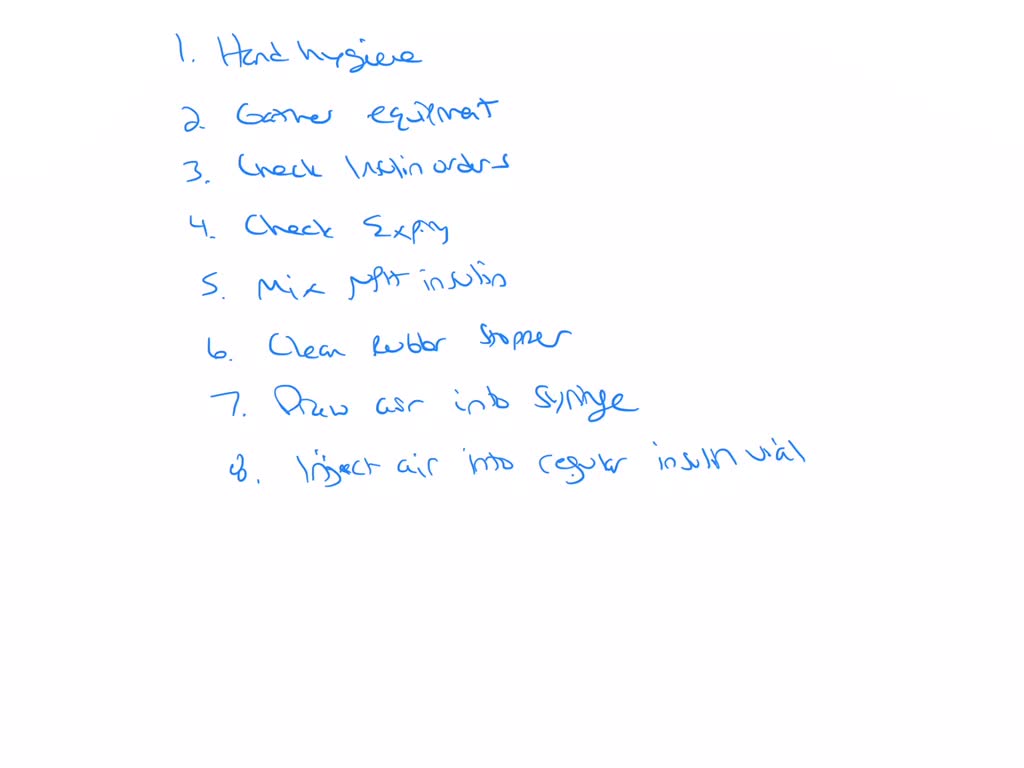 1. Hand hygiene
2. Gather equipment
3. Check Insulin orders
4. Check Expiry
5. Mix NPH insulin
6. Clean Rubber stopper
7. Draw air into syringe
8. Inject air into regular insulin vial